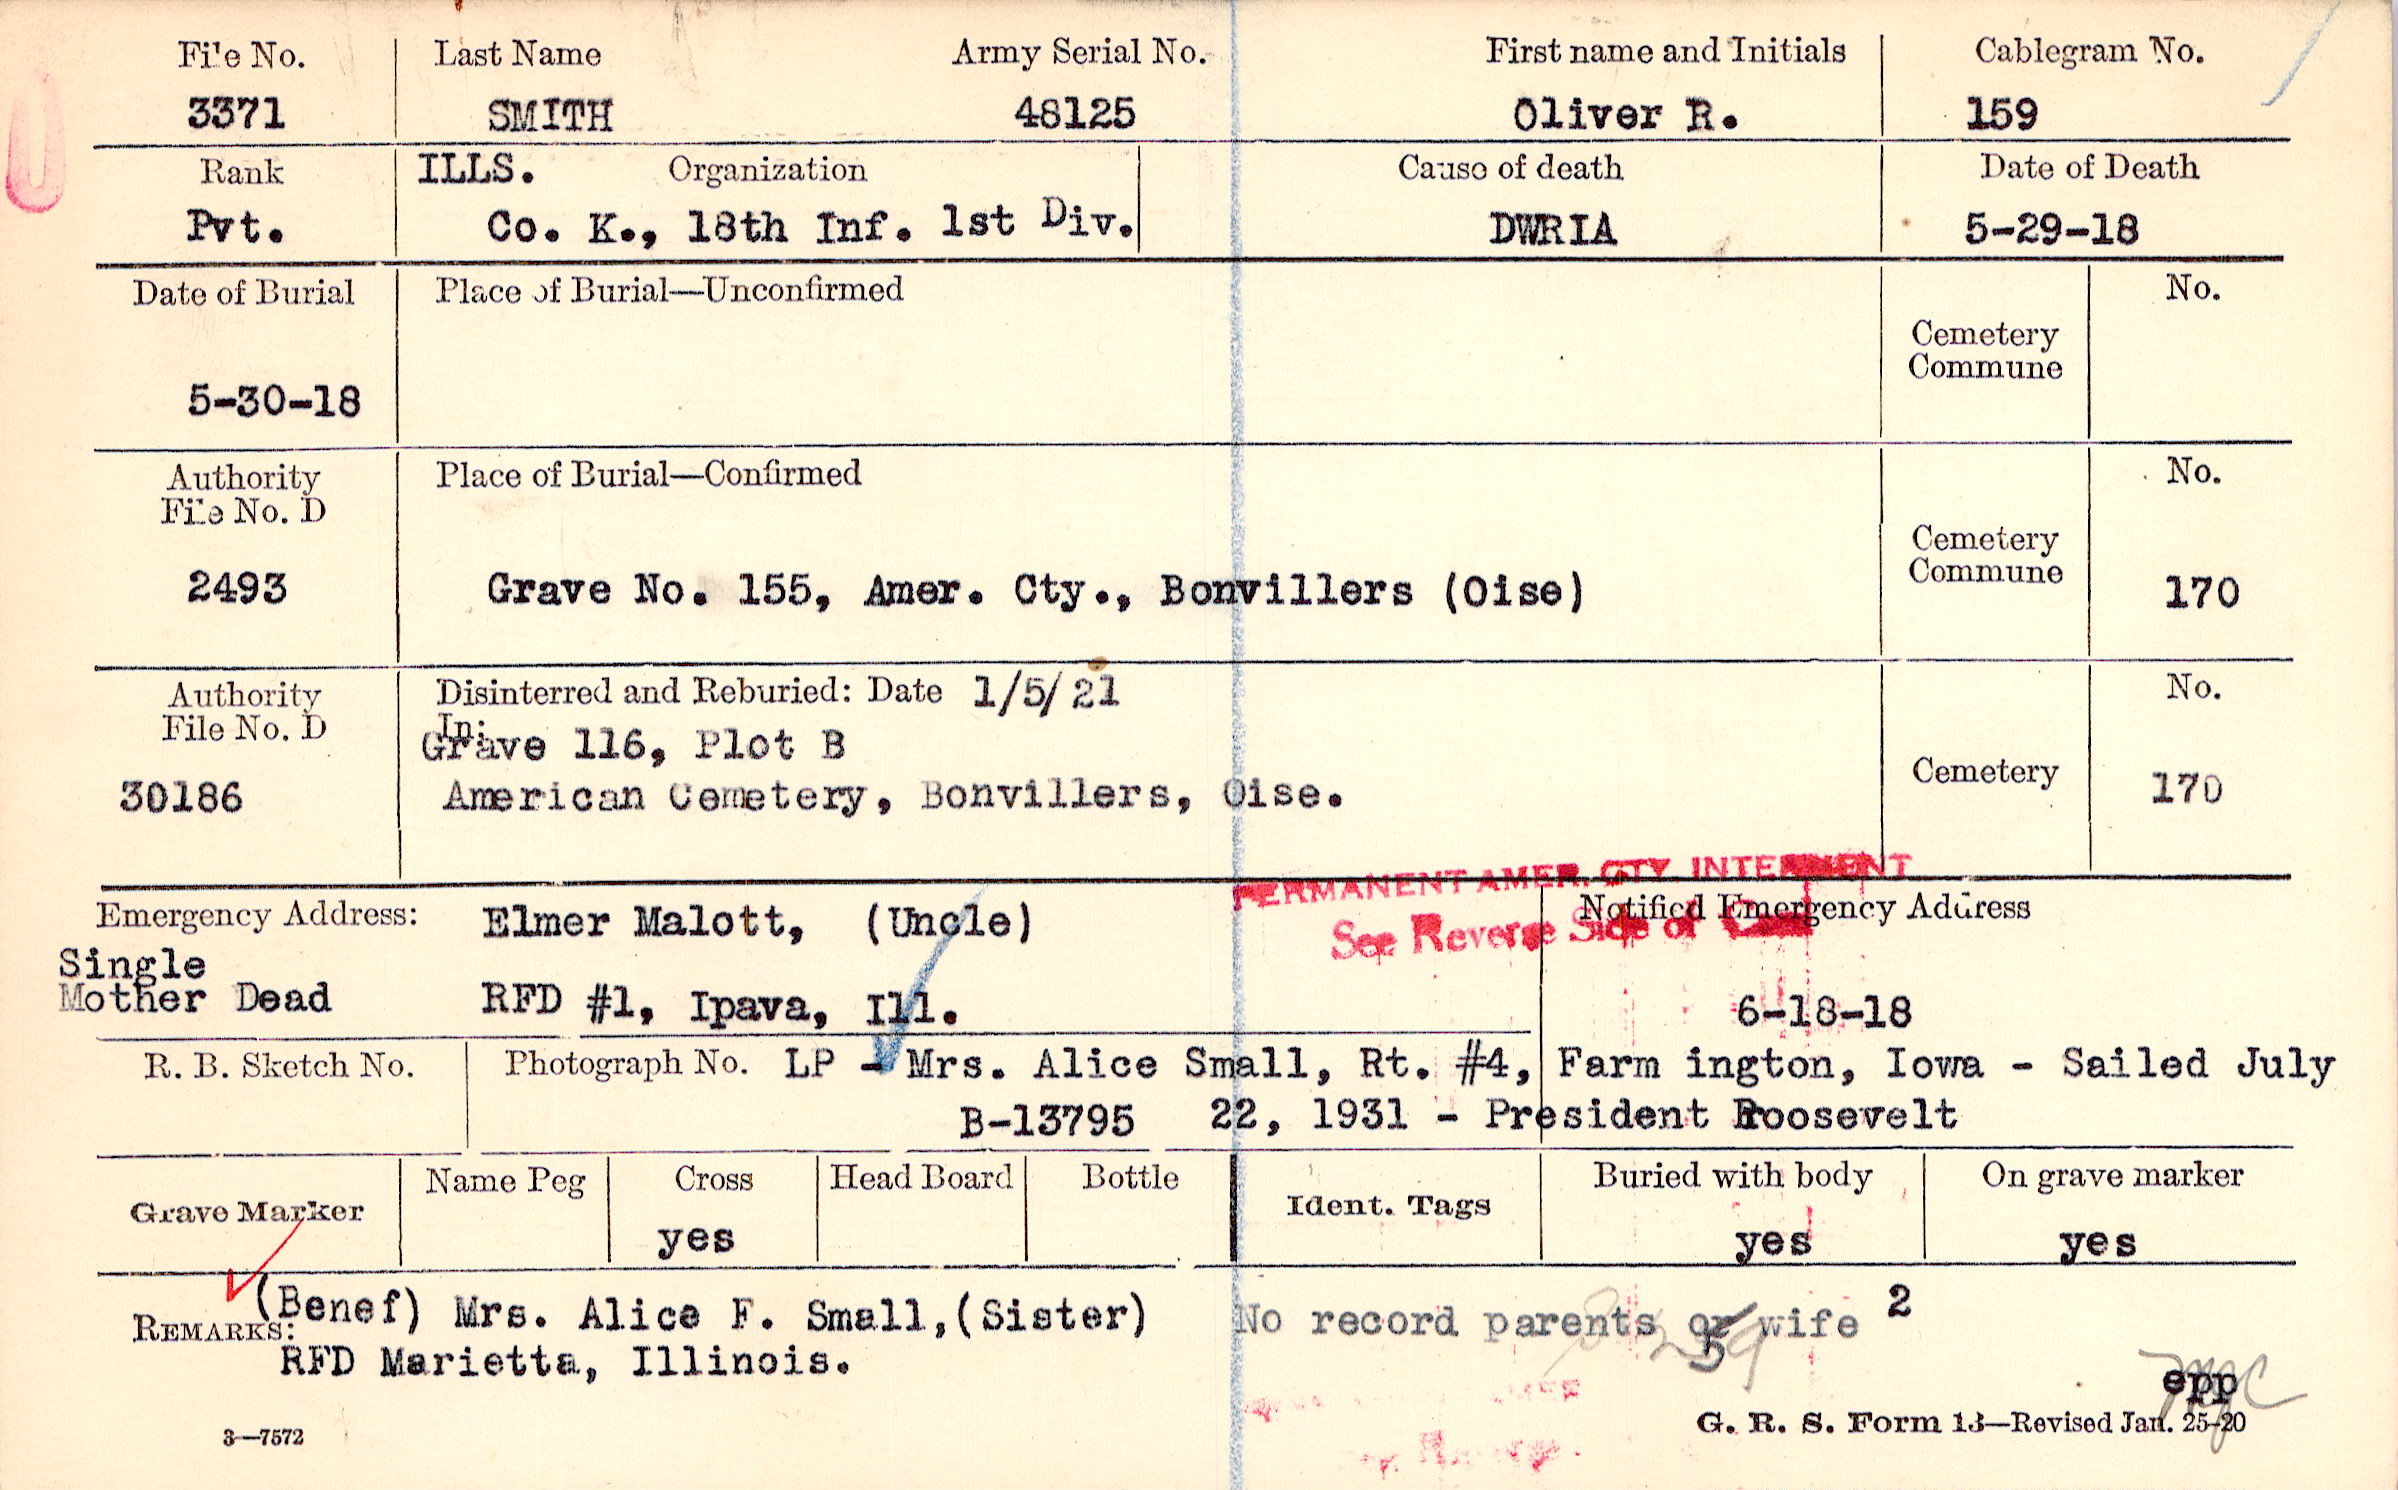 File No.
Last Name
Army Serial No.
First name and Initials
Cablegram No.
3371
SMITH
48125
Oliver R.
159
Rank
ILLS.
Organization
Cause of death
Date of Death
Pvt.
Co. K., 18th Inf. 1st Div.
DWRIA
5-29-18
Date of Burial
Place of Burial—Unconfirmed
No.
Cemetery
Commune
5-30-18
Authority
File No. D
Place of Burial—Confirmed
No.
Cemetery
Commune
2493
Grave No. 155, Amer. Cty., Bonvillers (Oise)
170
Authority
File No. D
Disinterred and Reburied: Date 1/5/21
No.
In:
Grave 116, Plot B
30186
American Cemetery, Bonvillers, Oise.
Cemetery
170
PERMANENT AMER. CTY INTERMENT
See Reverse Side of
Emergency Address:
Elmer Malott, (Uncle)
Notified Emergency Address
Single
Mother Dead
RFD #1, Ipava, Ill.
6-18-18
R. B. Sketch No.
Photograph No.
LP - Mrs. Alice Small, Rt. #4, Farm ington, Iowa - Sailed July
B-13795
22, 1931 - President Roosevelt
Grave Marker
Name Peg
Cross
Head Board
Bottle
Ident. Tags
Buried with body
On grave marker
yes
yes
yes
REMARKS:
(Benef) Mrs. Alice F. Small,(Sister)
No record parents or wife 2
RFD Marietta, Illinois.
epp
3—7572
G. R. S. Form 13—Revised Jan. 25-20